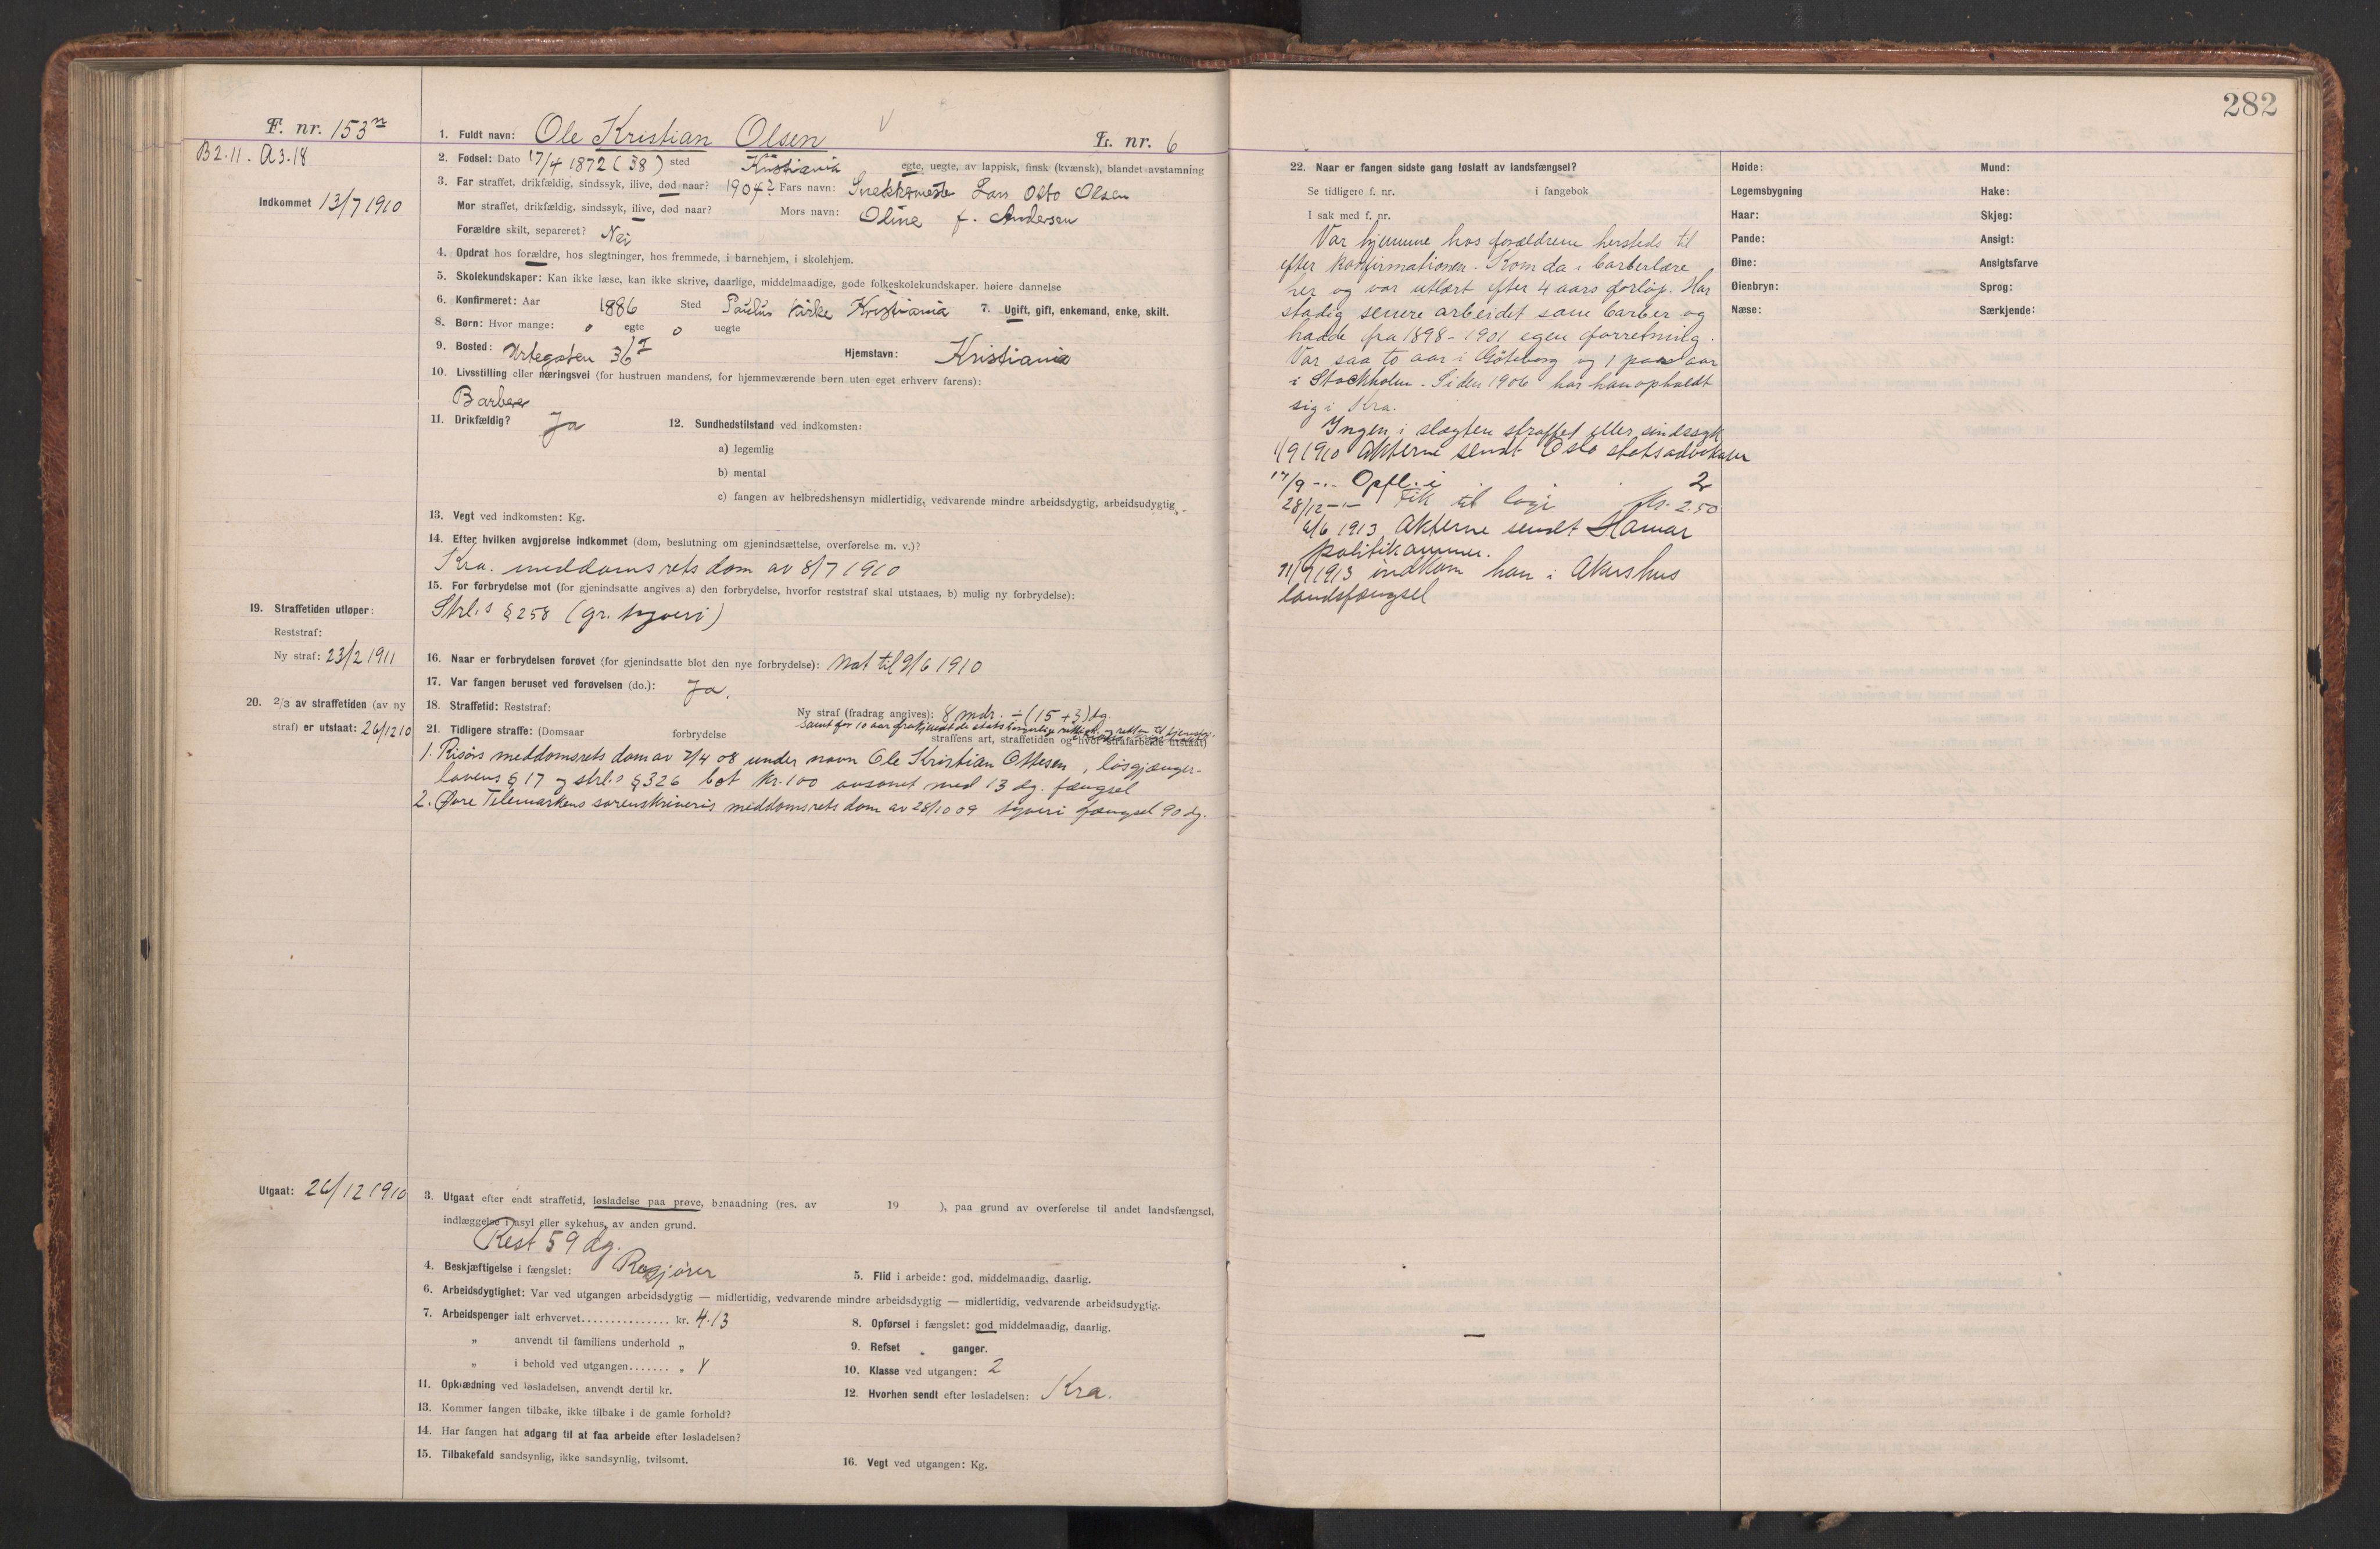 F. nr. 153
B2.11. A3.18
Indkommet 13/7 1910
1. Fuldt navn: Ole Kristian Olsen
L. nr. 6
2. Fødsel: Dato 17/4 1872 (38) sted Kristiania egte, uegte, av lappisk, finsk (kvænsk), blandet avstamning
3. Far straffet, drikfældig, sindssyk, ilive, død naar? 1904? Fars navn: Snekkermester Lars Otto Olsen
Mor straffet, drikfældig, sindssyk, ilive, død naar? Mors navn: Oline f. Andersen
Forældre skilt, separeret? Nei
4. Opdrat hos forældre, hos slegtninger, hos fremmede, i barnehjem, i skolehjem.
5. Skolekundskaper: Kan ikke læse, kan ikke skrive, daarlige, middelmaadige, gode folkeskolekundskaper. høiere dannelse
6. Konfirmeret: Aar 1886 Sted Paulus Kirke Kristiania 7. Ugift, gift, enkemand, enke, skilt.
8. Børn: Hvor mange: 0 egte 0 uegte
9. Bosted: Urtegaten 36 I Hjemstavn: Kristiania
10. Livsstilling eller næringsvei (for hustruen mandens, for hjemmeværende børn uten eget erhverv farens):
Barber
11. Drikfældig? Ja 12. Sundhedstilstand ved indkomsten:
a) legemlig
b) mental
c) fangen av helbredshensyn midlertidig, vedvarende mindre arbeidsdygtig, arbeidsudygtig.
13. Vegt ved indkomsten: Kg.
14. Efter hvilken avgjørelse indkommet (dom, beslutning om gjenindsættelse, overførelse m. v.)?
Kra. meddomsrets dom av 8/7 1910
15. For forbrydelse mot (for gjenindsatte angives a) den forbrydelse, hvorfor reststraf skal utstaaes, b) mulig ny forbrydelse):
Strl.s § 258 (gr. tyveri)
19. Straffetiden utløper:
Reststraf:
Ny straf: 23/2 1911
16. Naar er forbrydelsen forøvet (for gjenindsatte blot den nye forbrydelse): Nat til 9/6 1910
17. Var fangen beruset ved forøvelsen (do.): Ja.
18. Straffetid: Reststraf: Ny straf (fradrag angives): 8 mdr. ÷ (15 + 3) dg.
samt for 10 aar frakjendt de statsborgerlige rettigh. og retten til tjeneste
20. 2/3 av straffetiden (av ny
straf) er utstaat: 26/12 10
21. Tidligere straffe: (Domsaar forbrydelse straffens art, straffetiden og hvor strafarbeide utstaat)
1. Risørs meddomsrets dom av 7/4 08 under navn Ole Kristian Ottesen, løsgjænger-
lovens § 17 og strl.s § 326 bot kr. 100 avsonet med 13 dg. fængsel
2. Øvre Telemarkens sorenskriveris meddomsrets dom av 28/10 09 tyveri fængsel 90 dg.
Utgaat: 26/12 1910
3. Utgaat efter endt straffetid, løsladelse paa prøve, benaadning (res. av 19 ), paa grund av overførelse til andet landsfængsel,
indlæggelse i asyl eller sykehus, av anden grund.
Rest 59 dg.
4. Beskjæftigelse i fængslet: Rengjører 5. Flid i arbeide: god, middelmaadig, daarlig.
6. Arbeidsdygtighet: Var ved utgangen arbeidsdygtig — midlertidig, vedvarende mindre arbeidsdygtig — midlertidig, vedvarende arbeidsudygtig.
7. Arbeidspenger ialt erhvervet............... kr. 4.13 8. Opførsel i fængslet: god middelmaadig, daarlig.
„ anvendt til familiens underhold „ 9. Refset „ ganger.
„ i behold ved utgangen....... „ 10. Klasse ved utgangen: 2
11. Opklædning ved løsladelsen, anvendt dertil kr. 12. Hvorhen sendt efter løsladelsen: Kra.
13. Kommer fangen tilbake, ikke tilbake i de gamle forhold?
14. Har fangen hat adgang til at faa arbeide efter løsladelsen?
15. Tilbakefald sandsynlig, ikke sandsynlig, tvilsomt. 16. Vegt ved utgangen: Kg.
282
22. Naar er fangen sidste gang løslatt av landsfængsel?
Se tidligere f. nr. i fangebok
I sak med f. nr.
Var hjemme hos forældrene hersteds til
efter konfirmationen. Kom da i barberlære
her og var utlært efter 4 aars forløp. Har
stadig senere arbeidet som barber og
hadde fra 1898-1901 egen forretning.
Var saa to aar i Göteborg og 1 aar
i Stockholm. Siden 1906 har han opholdt
sig i Kra.
Ingen i slægten straffet eller sindssyk
1/9 1910 Akterne sendt Oslo statsadvokater
17/9 -.- Opfl. i 2
28/12 -.- Fik til logi kr. 2.50
6/6 1913 Akterne sendt Hamar
politikammer.
11/7 1913 indkom han i Akershus
landsfængsel
Høide: Mund:
Legemsbygning Hake:
Haar: Skjeg:
Pande: Ansigt:
Øine: Ansigtsfarve
Øienbryn: Sprog:
Næse: Særkjende: